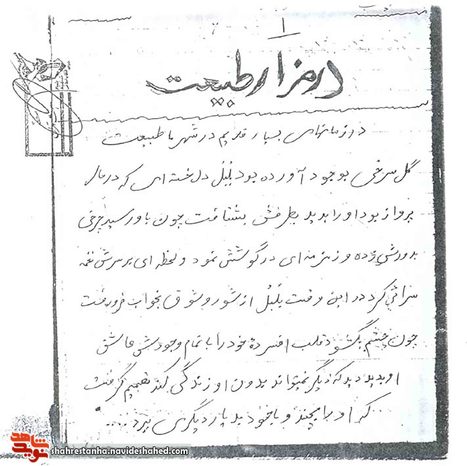 ۱
در مزار طبیعت
در زمانهای بسیار قدیم در شهر ما طبیعت
گل سرخی بوجود آورده بود بلبل دلخسته ای که در حال
پرواز بود او را بدید بطرفش بشتافت چون باو رسید چرخی
بدورش زده و زمزمه ای در گوشش نمود و لحظه ای بر سرش نغمه
سرائی کرد در این وقت بلبل از شور و شوق بخواب فرو رفت
چون چشم بگشود قلب افسرده خود را با تمام وجودش عاشق
او بدید دید که دیگر نمیتواند بدون او زندگی کند تصمیم گرفت
که او را بچیند و با خود به یار دیگری ببرد ....
نوید شاهد
shahrestanha.navideshahed.com